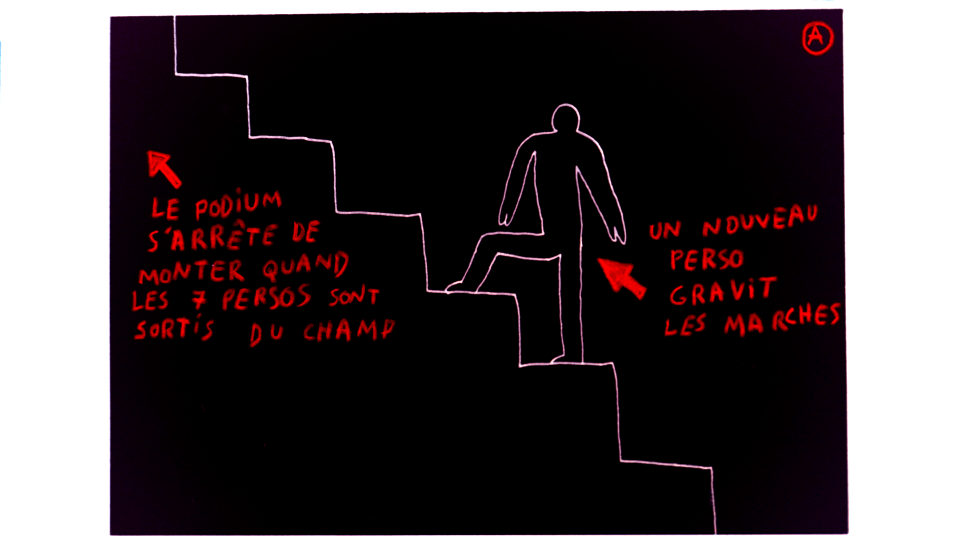 A
LE PODIUM
S'ARRÊTE DE
MONTER QUAND
LES 7 PERSOS SONT
SORTIS DU CHAMP
UN NOUVEAU
PERSO
GRAVIT
LES MARCHES